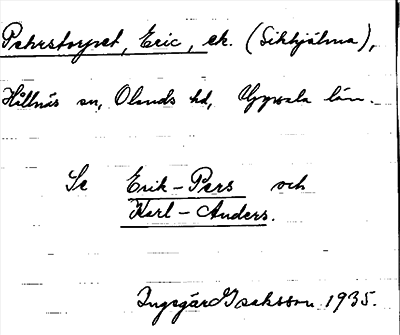 Pehrstorpet, Eric, ek. (Sikhjälma),
Hållnäs sn, Olands hd, Uppsala län.
Se Erik-Pers och
Karl-Anders.
Ingegär Isaksson 1935.